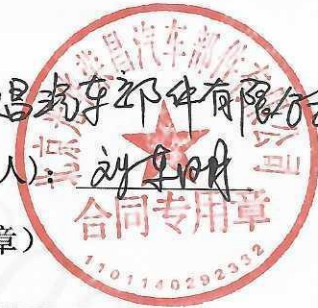 昌汽车部件有限公司
人）：刘
合同专用章
章）
1101140292332